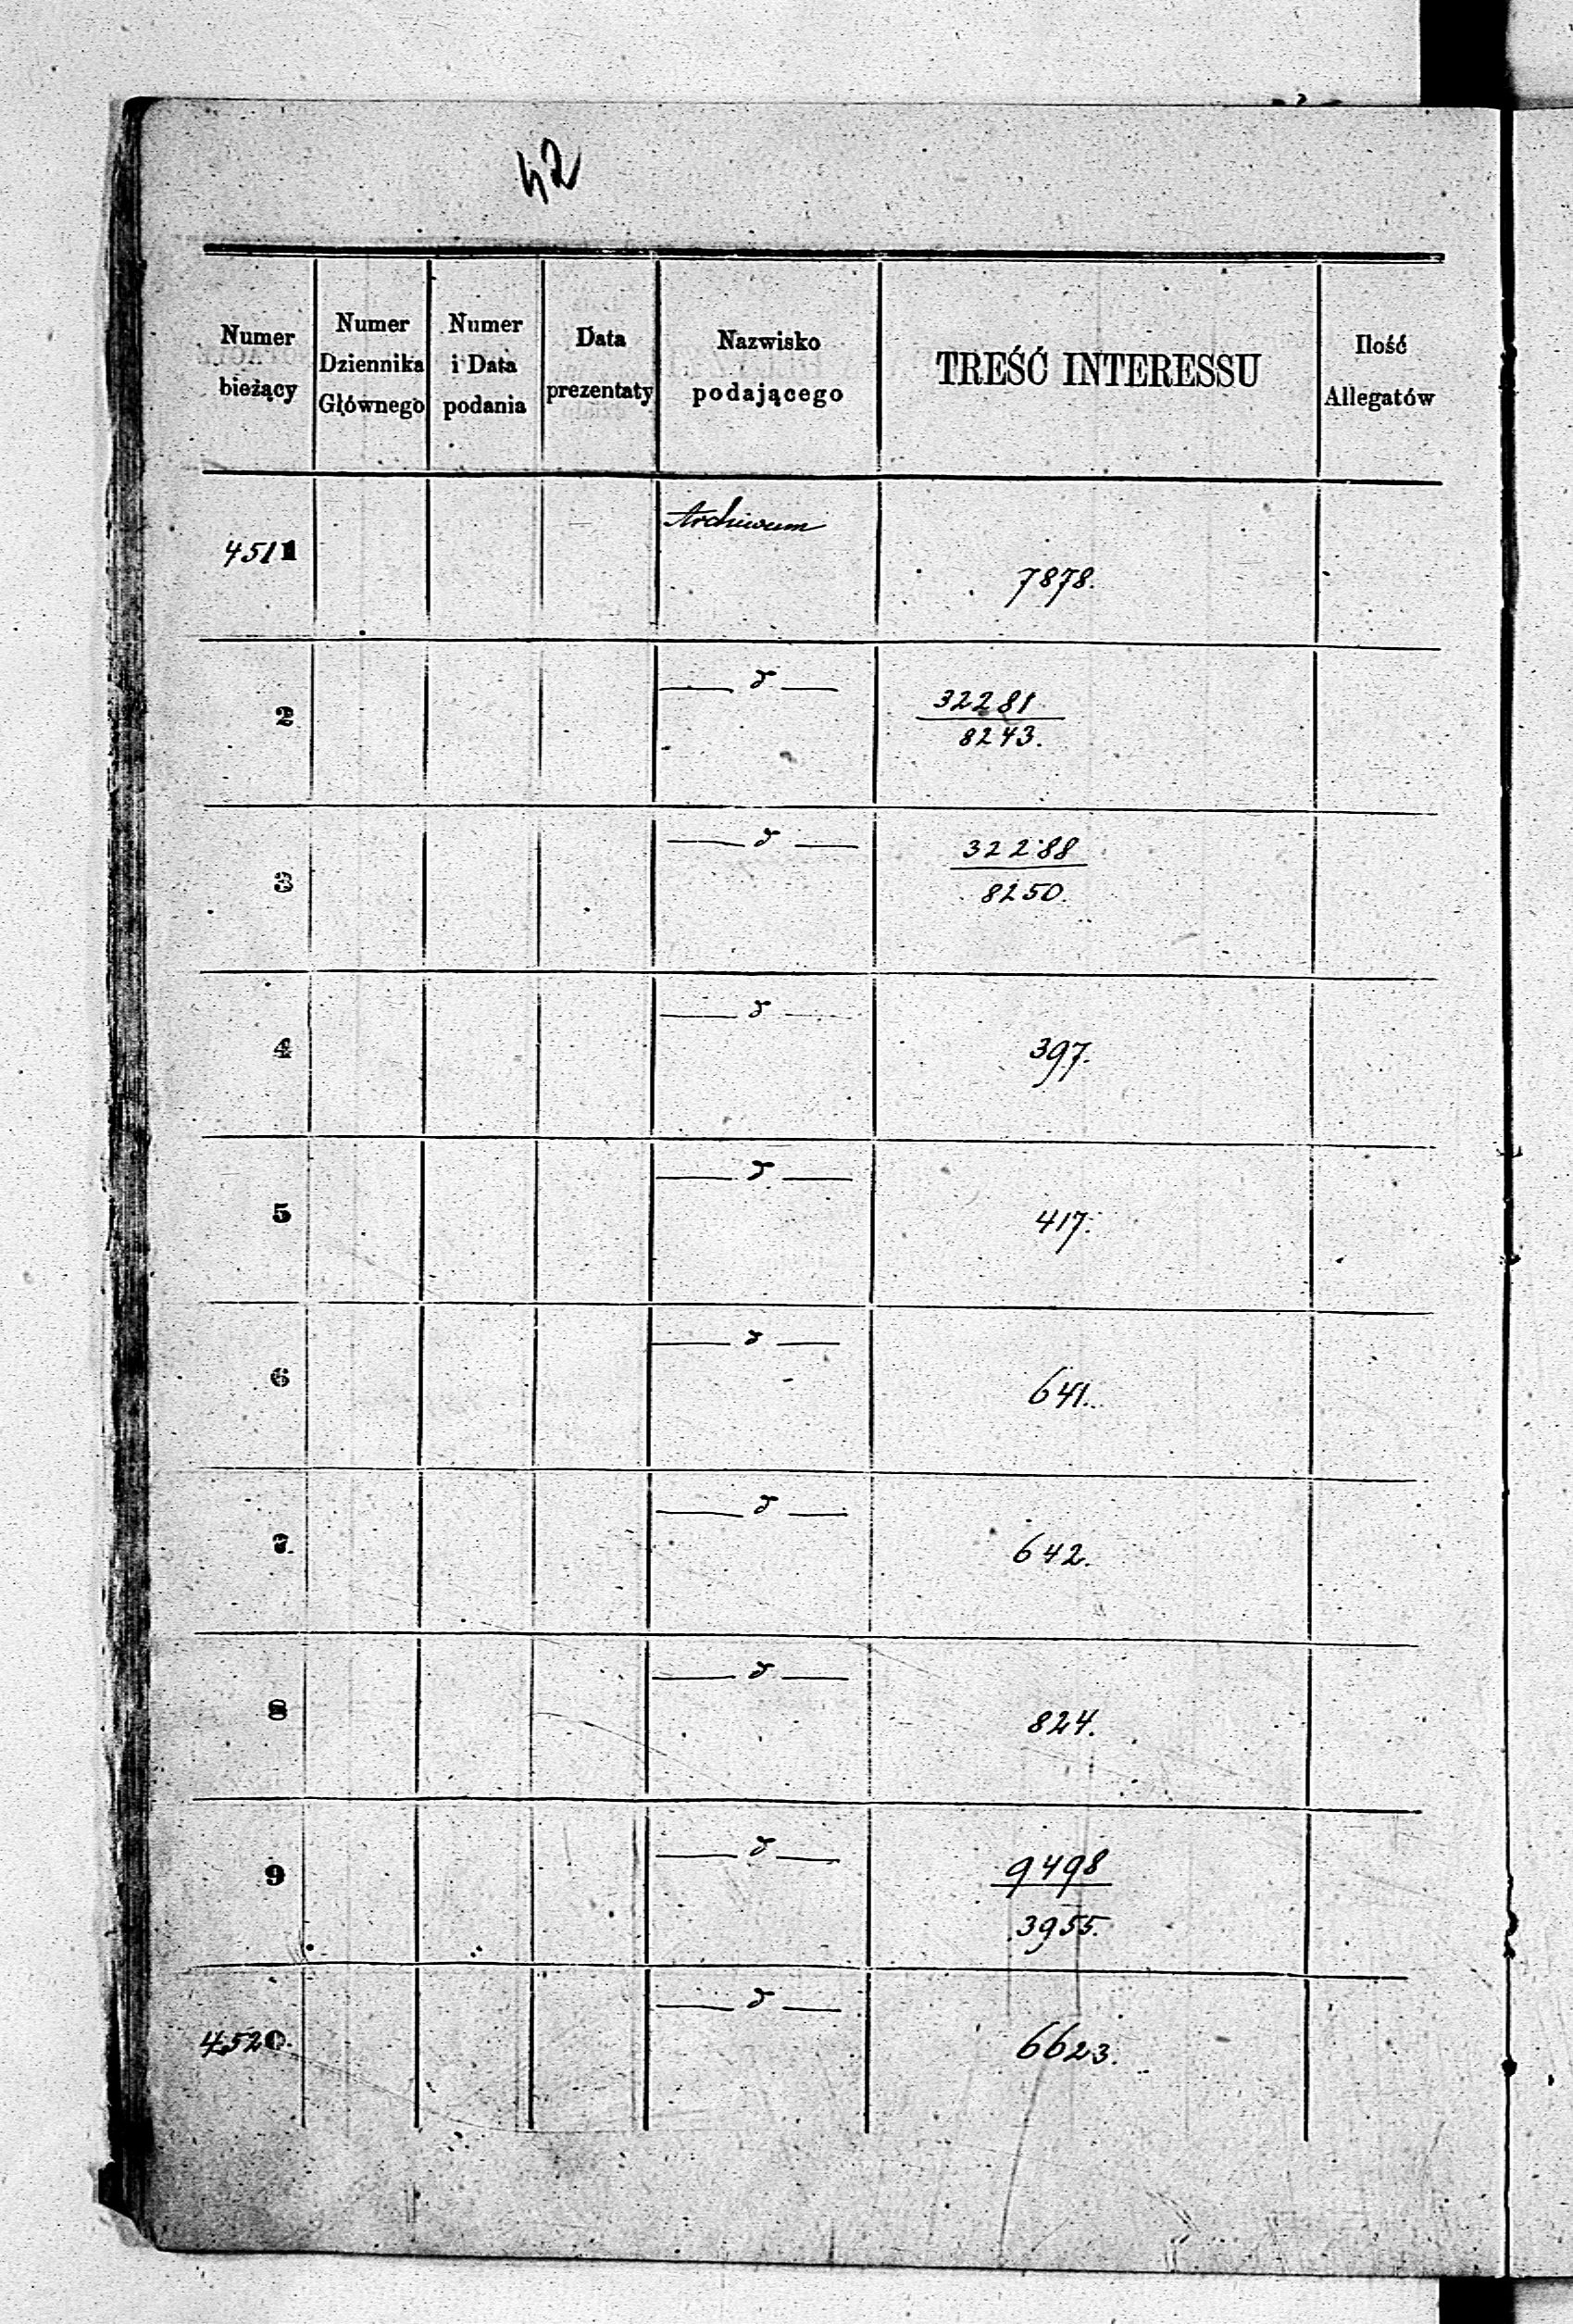 42
Numer bieżący
Numer Dziennika Głównego
Numer i Data podania
Data prezentaty
Nazwisko podającego
TREŚĆ INTERESSU
Ilość Allegatów
4511 Archiwum 7878.
2 — d — 32281
8243.
3 — d — 32288
8250.
4 — d — 397.
5 — d — 417.
6 — d — 641.
7. — d — 642.
8 — d — 824.
9 — d — 9498
3955.
4520. — d — 6623.